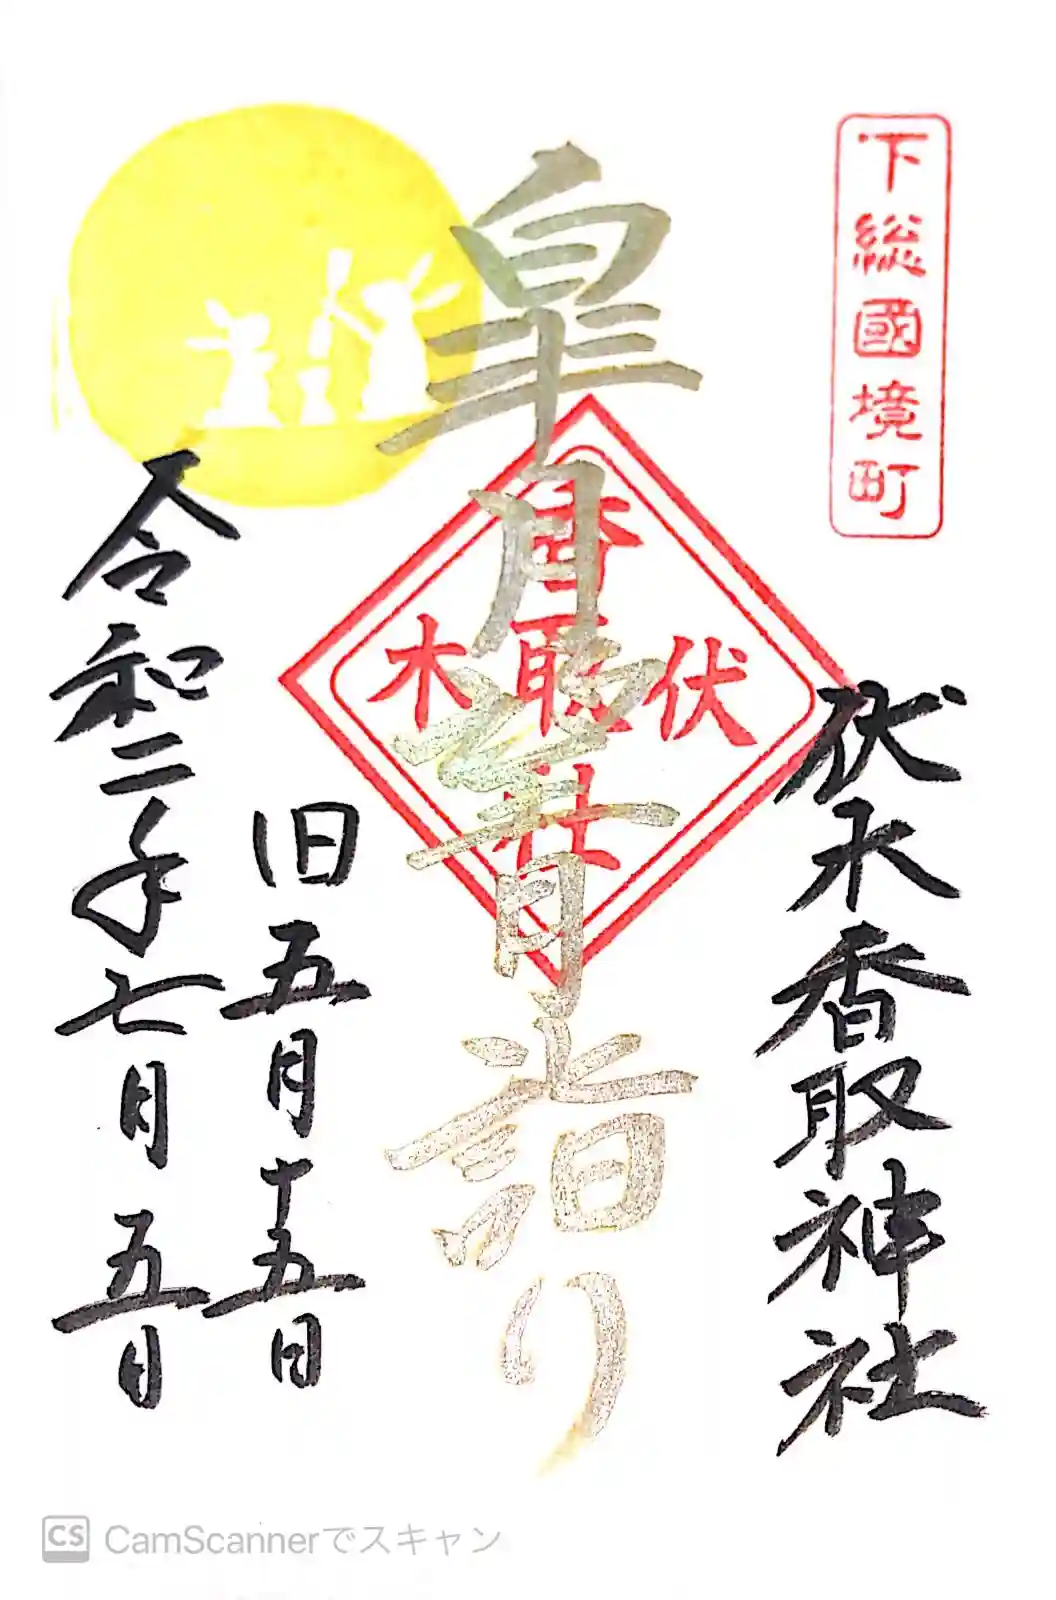 下総國境町
伏木香取神社
皐月望月詣り
伏木
香取社
旧五月十五日
令和二年七月五日
CS CamScannerでスキャン